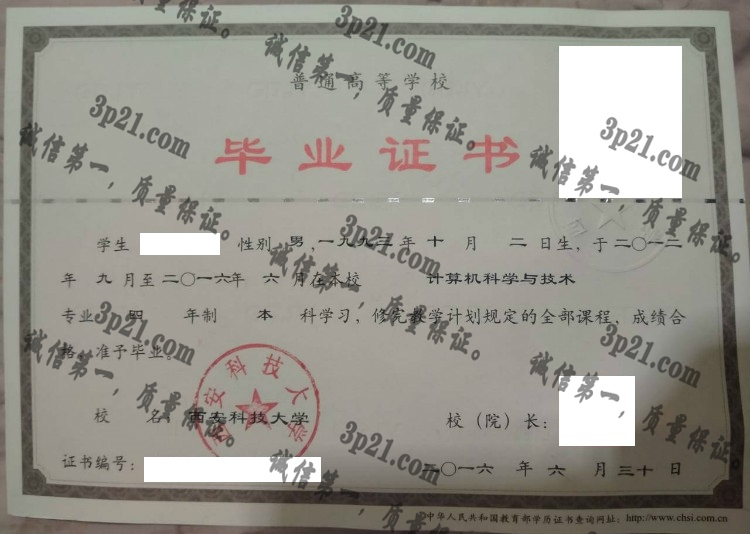 普通高等学校
毕业证书
学生 性别 男，一九九三年 十 月 二日生，于二〇一二
年 九 月至二〇一六年 六 月在本校 计算机科学与技术
专业 四 年制 本 科学习，修完教学计划规定的全部课程，成绩合
格，准予毕业。
校 名 西安科技大学 校（院）长：
证书编号： 二〇一六 年 六 月三十日
中华人民共和国教育部学历证书查询网址：http://www.chsi.com.cn
西安科技大学
质量保证。
3p21.com
诚信第一，质量保证。
3p21.com
诚信第一，质量保证。
3p21.com
诚信第一，质量保证。
3p21.com
诚信第一，质量保证。
3p21.com
诚信第一，质量保证。
3p21.com
诚信第一，质量保证。
3p21.com
诚信第一，质量保证。
3p21.com
诚信第一，质量保证。